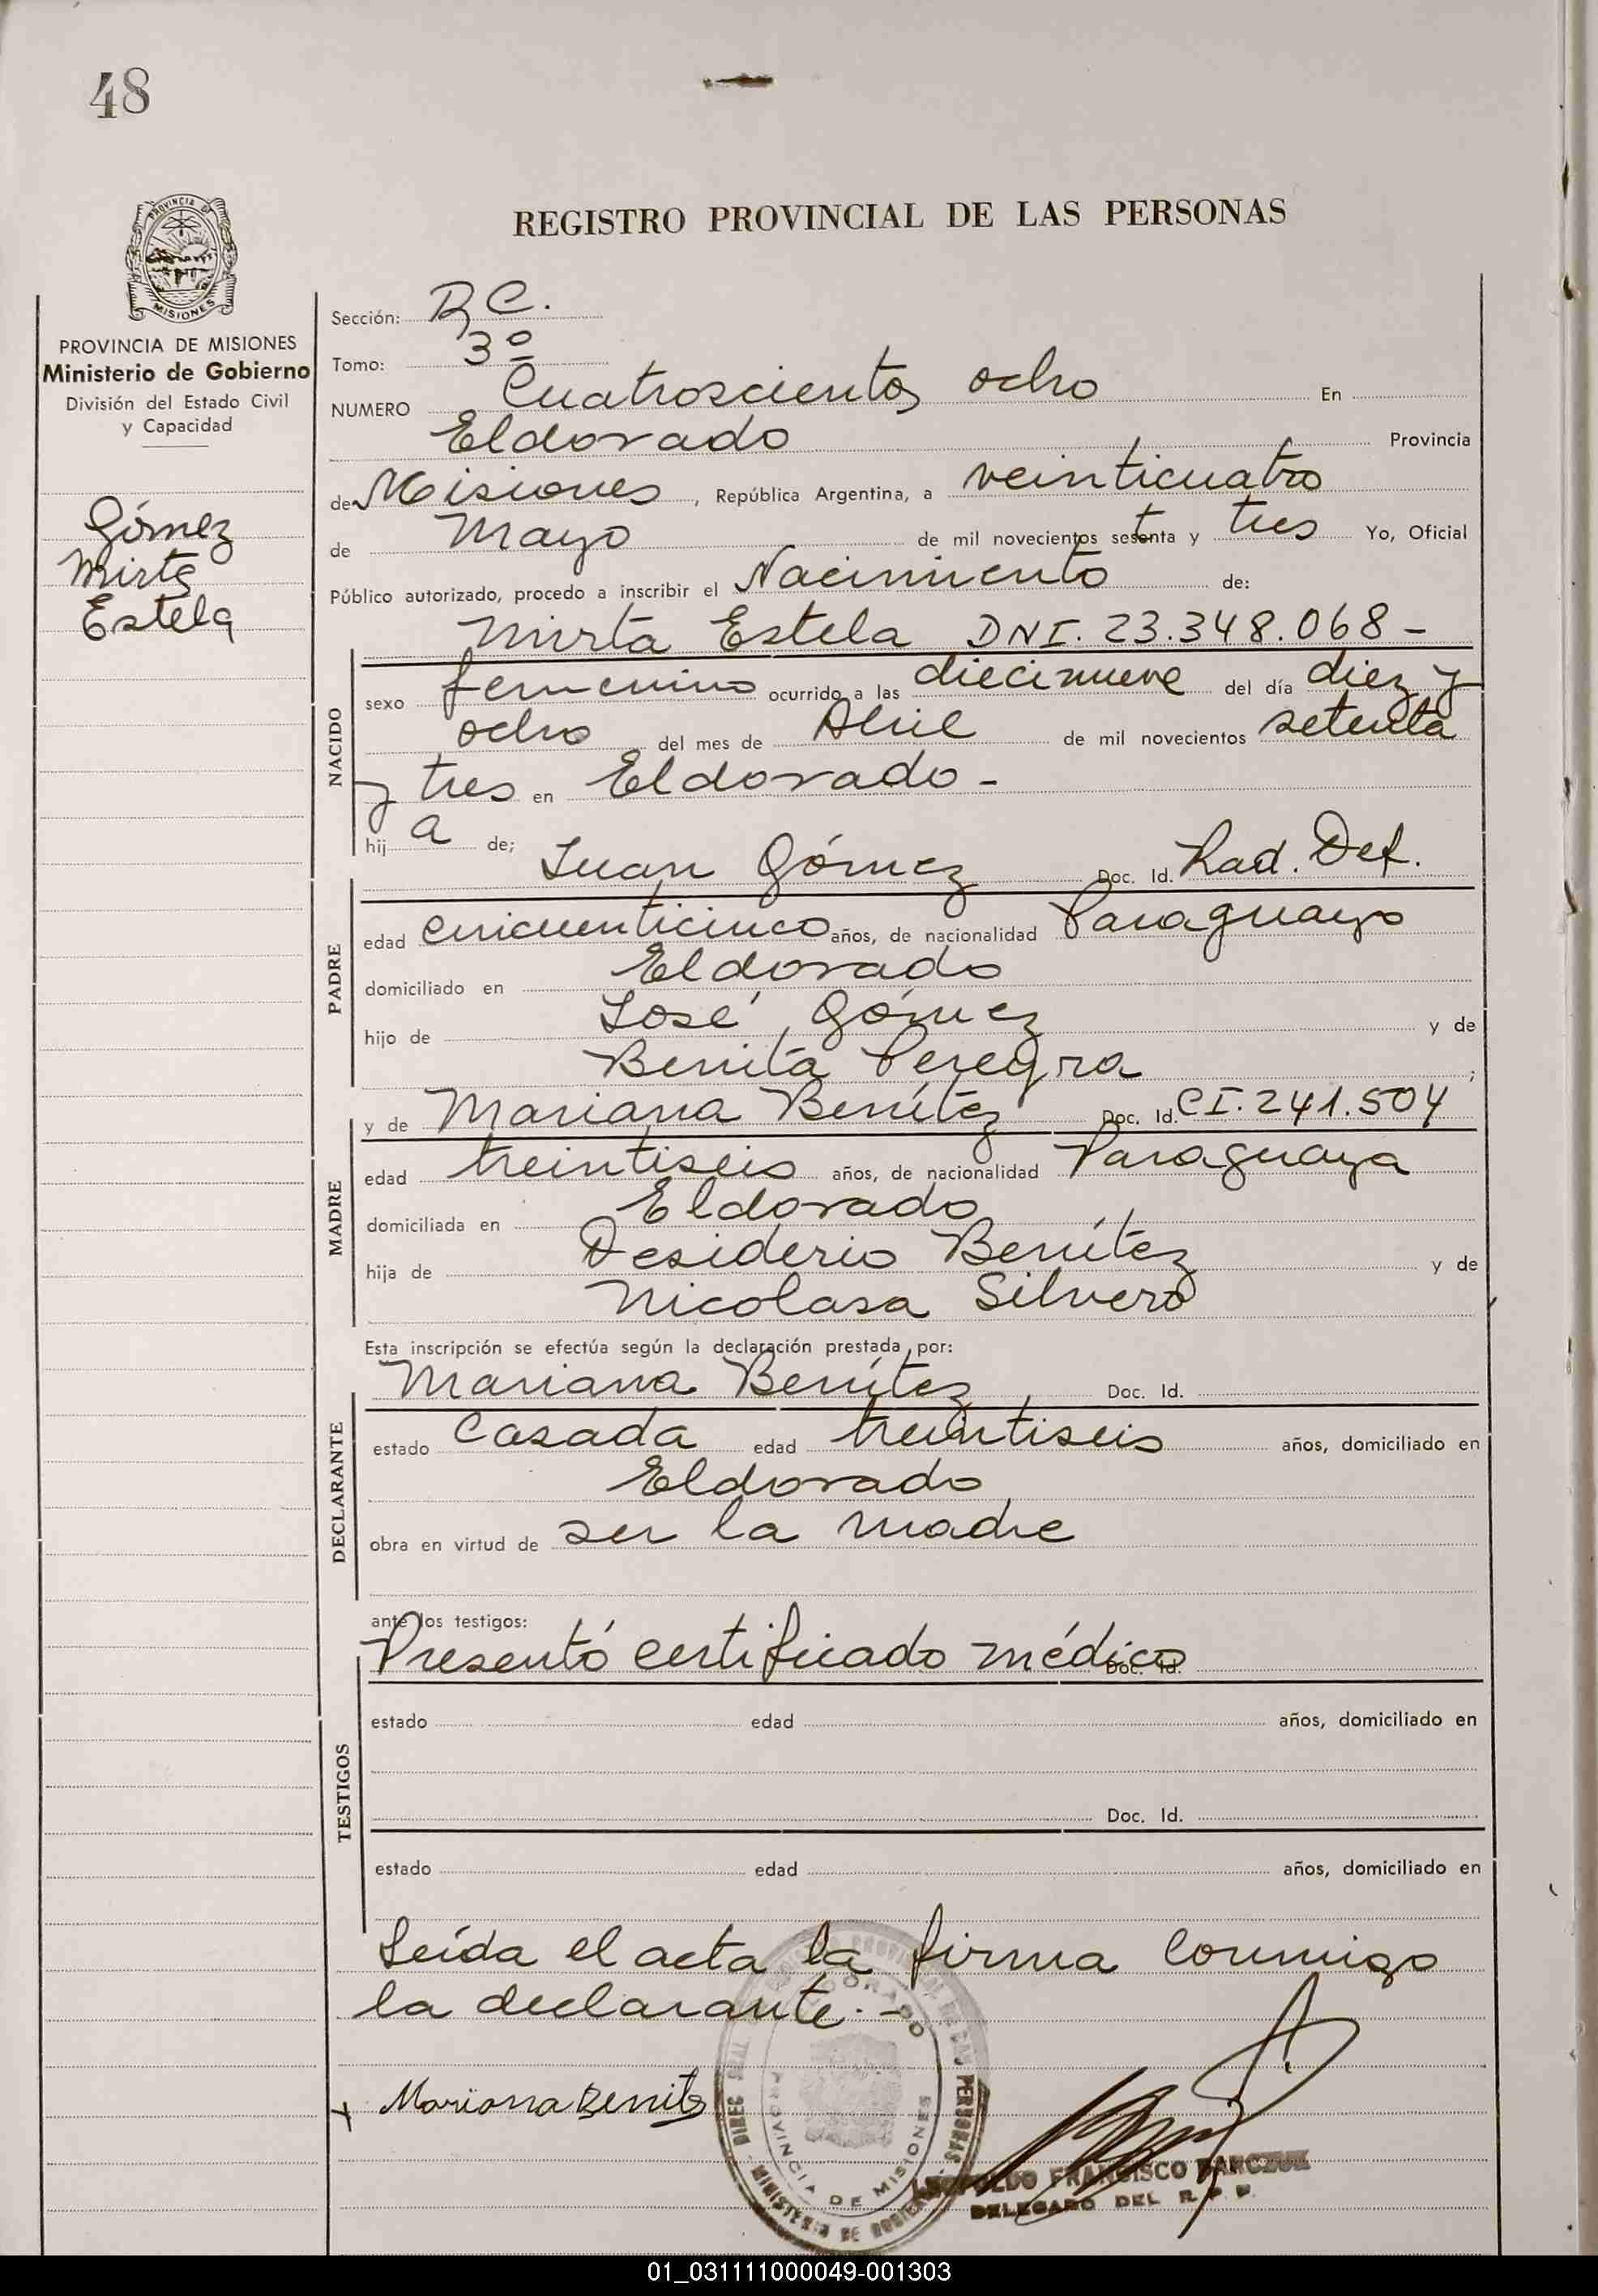 48
PROVINCIA DE
MISIONES
PROVINCIA DE MISIONES
Ministerio de Gobierno
División del Estado Civil
y Capacidad
Gómez
Mirta
Estela
REGISTRO PROVINCIAL DE LAS PERSONAS
Sección: R C.
Tomo: 3º
NUMERO Cuatroscientos ocho En
Eldorado Provincia
de Misiones, República Argentina, a veinticuatro
de Mayo de mil novecientos setenta y tres Yo, Oficial
Público autorizado, procedo a inscribir el Nacimiento de:
Mirta Estela DNI. 23.348.068 -
NACIDO
sexo femenino ocurrido a las diecinueve del día diez y
ocho del mes de Abril de mil novecientos setenta
y tres en Eldorado -
hij a de;
PADRE
Juan Gómez Doc. Id. Rad. Def.
edad cincuenticinco años, de nacionalidad Paraguayo
domiciliado en Eldorado
hijo de José Gómez y de
Benita Peregra ;
MADRE
y de Mariana Benítez Doc. Id. CI. 241.504
edad treintiseis años, de nacionalidad Paraguaya
domiciliada en Eldorado
hija de Desiderio Benítez y de
Nicolasa Silvero
Esta inscripción se efectúa según la declaración prestada por:
DECLARANTE
Mariana Benítez, Doc. Id.
estado Casada edad treintiseis años, domiciliado en
Eldorado
obra en virtud de ser la madre
ante los testigos:
TESTIGOS
Presentó certificado médico Doc. Id.
estado edad años, domiciliado en
Doc. Id.
estado edad años, domiciliado en
Leída el acta la firma conmigo
la declarante. -
+ Mariana Benitz
ELDORADO
PROVINCIA DE MISIONES
MINISTERIO DE GOBIERNO
LEOPOLDO FRANCISCO
DELEGADO DEL R. P. P.
01_031111000049-001303